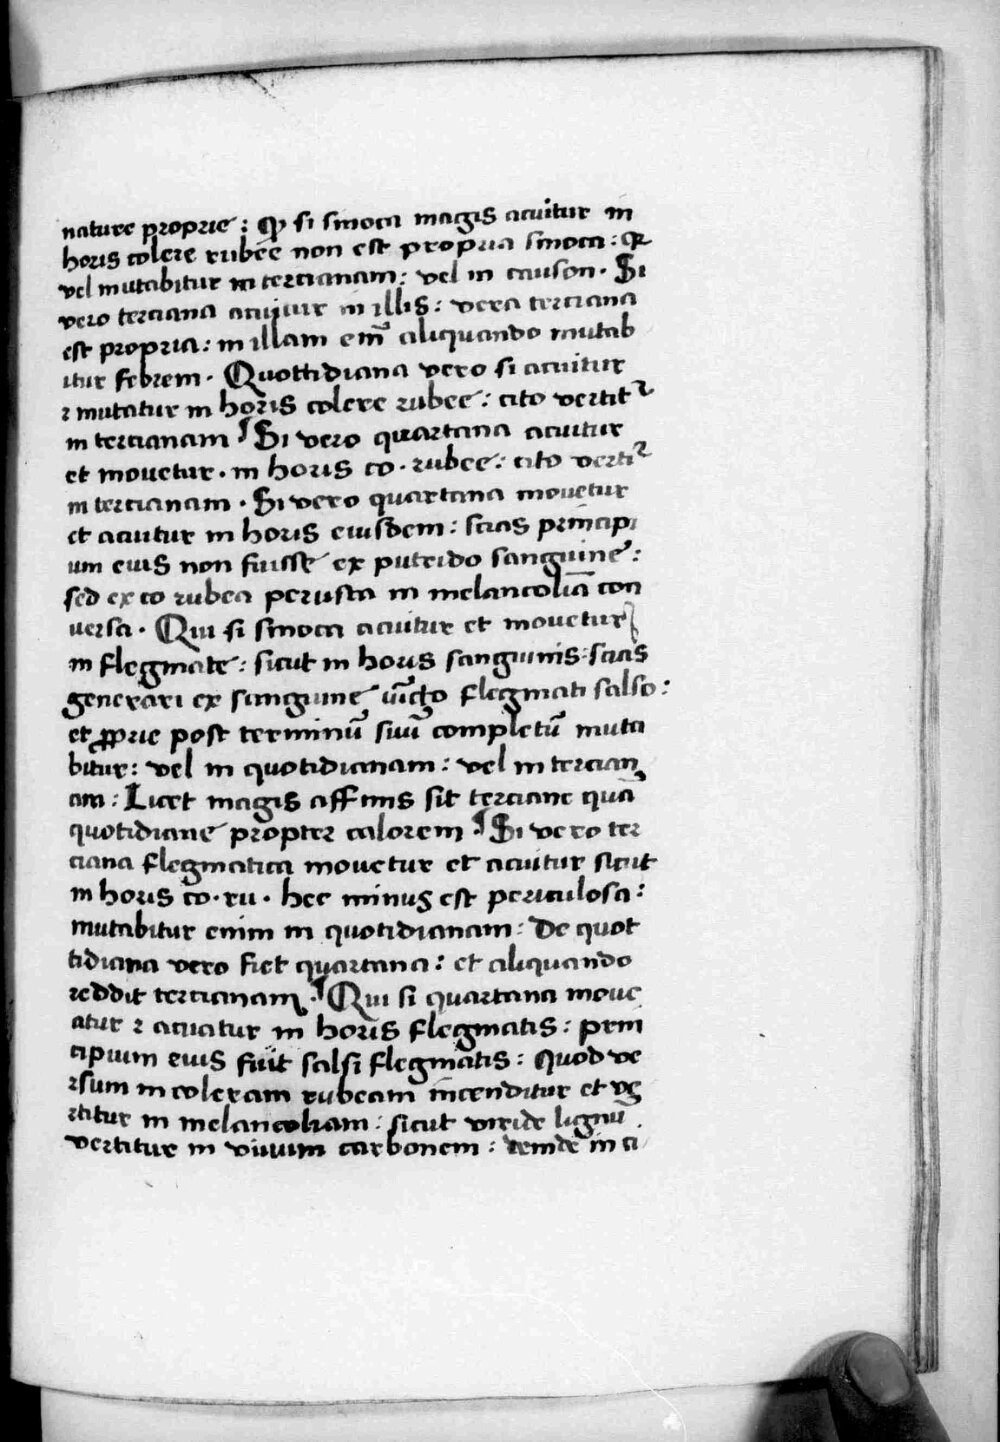 nature proprie : ꝙ si sinoca magis acuitur in
horis colere rubee non est propria sinoca : qꝛ
vel mutabitur in tercianam : vel in causon . Si
vero terciana acuitur in illis : vera terciana
est propria : in illam em̄ aliquando mutab
itur febrem . Quottidiana vero si acuitur
ꝛ mutatur in horis colere rubee : cito vertit᷑
in tercianam ¶ Si vero quartana acuitur
et mouetur . in horis co . rubee : cito verti᷑
in tercianam . Si vero quartana mouetur
et acuitur in horis eiusdem : scias principi
um eius non fuisse ex putrido sanguine :
sed ex co rubea perusta in melancoliā con
uersa . Qui si sinoca acuitur et mouetur
in flegmate : sicut in horis sanguinis : scias
generari ex sanguine iūcto flegmati salso :
et ꝓprie post terminū suū completū muta
bitur : vel in quotidianam : vel in tercian
am : Licet magis affinis sit terciane quā
quotidiane propter calorem ¶ Si vero ter
ciana flegmatica mouetur et acuitur sicut
in horis co . ru . hec minus est periculosa :
mutabitur enim in quotidianam : De quot
tidiana vero fiet quartana : et aliquando
reddit tercianam . ¶ Qui si quartana moue
atur ꝛ acuatur in horis flegmatis : prin
cipium eius fuit salsi flegmatis : quod ve
rsum in coleram rubeam incenditur et ve
rtitur in melancoliam : sicut viride lignū
vertitur in viuum carbonem : deinde in ci